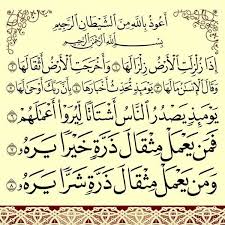 أعوذ بالله من الشيطان الرجيم
بسم الله الرحمن الرحيم
إذا زلزلت الأرض زلزالها ١ وأخرجت الأرض أثقالها ٢
وقال الإنسان ما لها ٣ يومئذ تحدث أخبارها ٤ بأن ربك أوحى لها ٥
يومئذ يصدر الناس أشتاتا ليروا أعمالهم ٦
فمن يعمل مثقال ذرة خيرا يره ٧
ومن يعمل مثقال ذرة شرا يره ٨